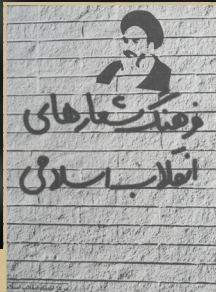 فرهنگ شعارهای
انقلاب اسلامی